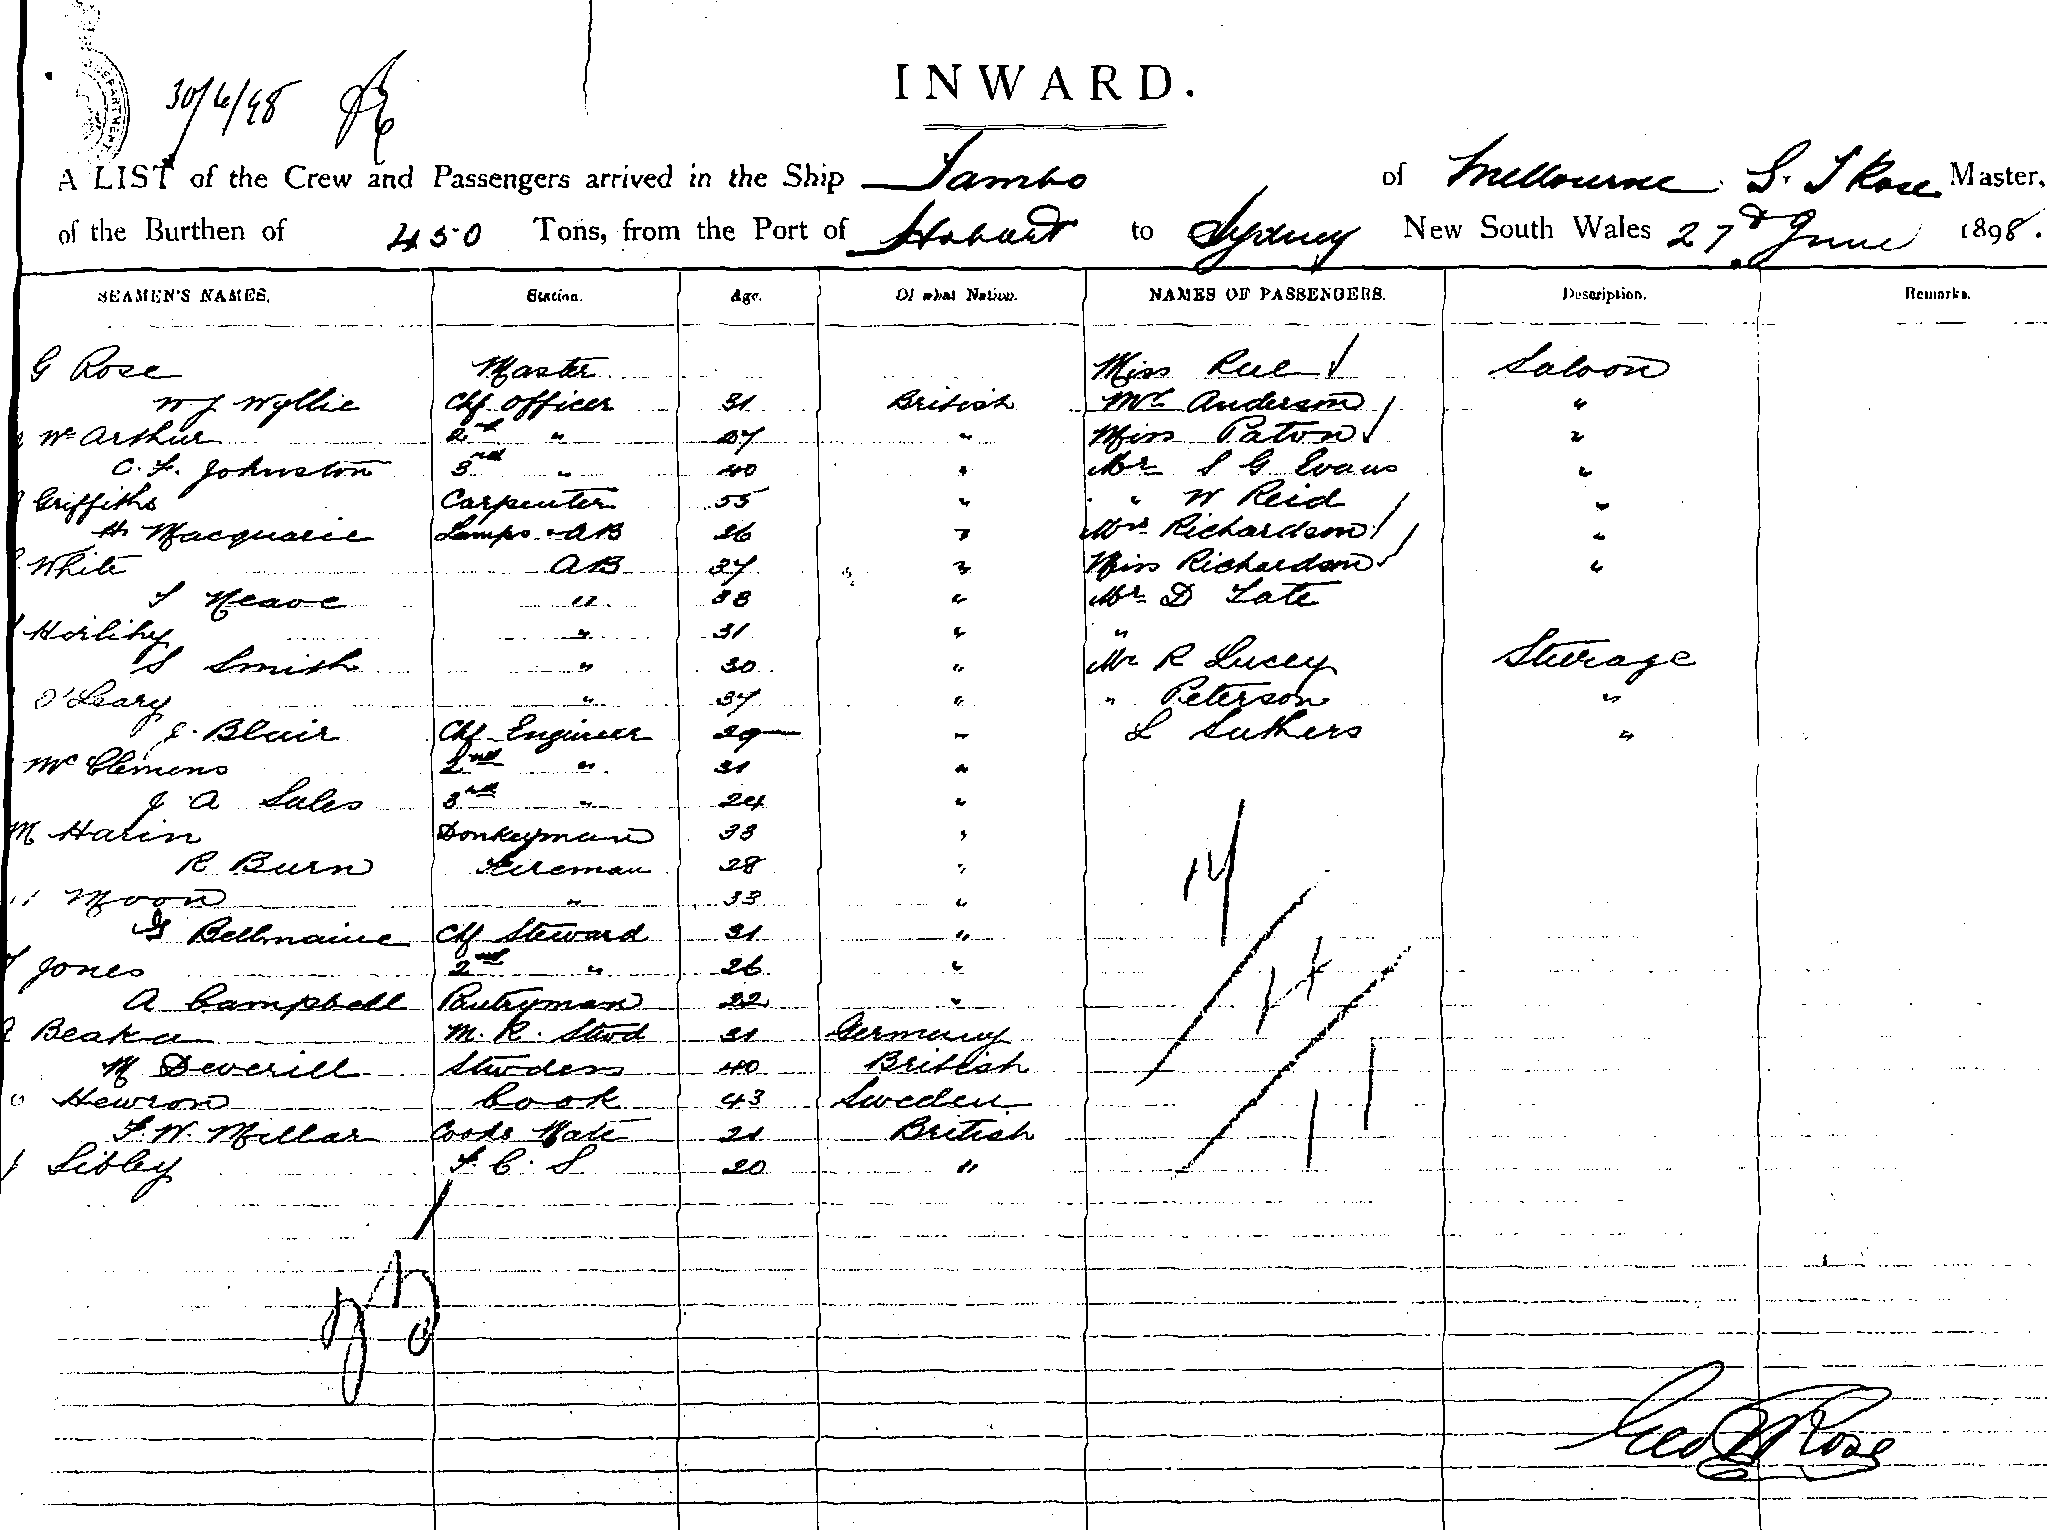 30/6/98
INWARD.
A LIST of the Crew and Passengers arrived in the Ship Tambo of Melbourne G. T Rose Master,
of the Burthen of 450 Tons, from the Port of Hobart to Sydney New South Wales 27th June 1898.
SEAMEN'S NAMES. Station. Age. Of what Nation. NAMES OF PASSENGERS. Description. Remarks.
G Rose Master Miss Rule Saloon
W J Wyllie Chf Officer 31 British Mr Anderson "
Wm Arthur 2nd " 27 " Miss Paton "
C. F. Johnston 3rd " 40 " Mr S G Evans "
Griffiths Carpenter 55 " " W Reid "
H Macquarie Lamps & AB 26 " Mrs Richardson "
White AB 37 " Miss Richardson "
T Neave " 38 " Mr D Tate
Horlihy " 31 " "
S Smith " 30 " Mr R Lucey Steerage
O'Leary " 37 " " Peterson "
J. Blair Chf Engineer 29 " L Suthers "
McClemens 2nd " 31 "
J. A Sales 3rd " 24 "
M Harin Donkeyman 33 "
R Burn Fireman 28 "
Moon " 33 "
G Bellmaine Chf Steward 31 "
Jones 2nd " 26 "
A Campbell Pantryman 22 "
Beaka M. R. Stwd 31 Germany
M Deverill Stwdess 40 British
Hewron Cook 43 Sweden
F. W. Millar Cooks Mate 21 British
Sibley F. C. S 20 "
14
14
11
Geo T Rose